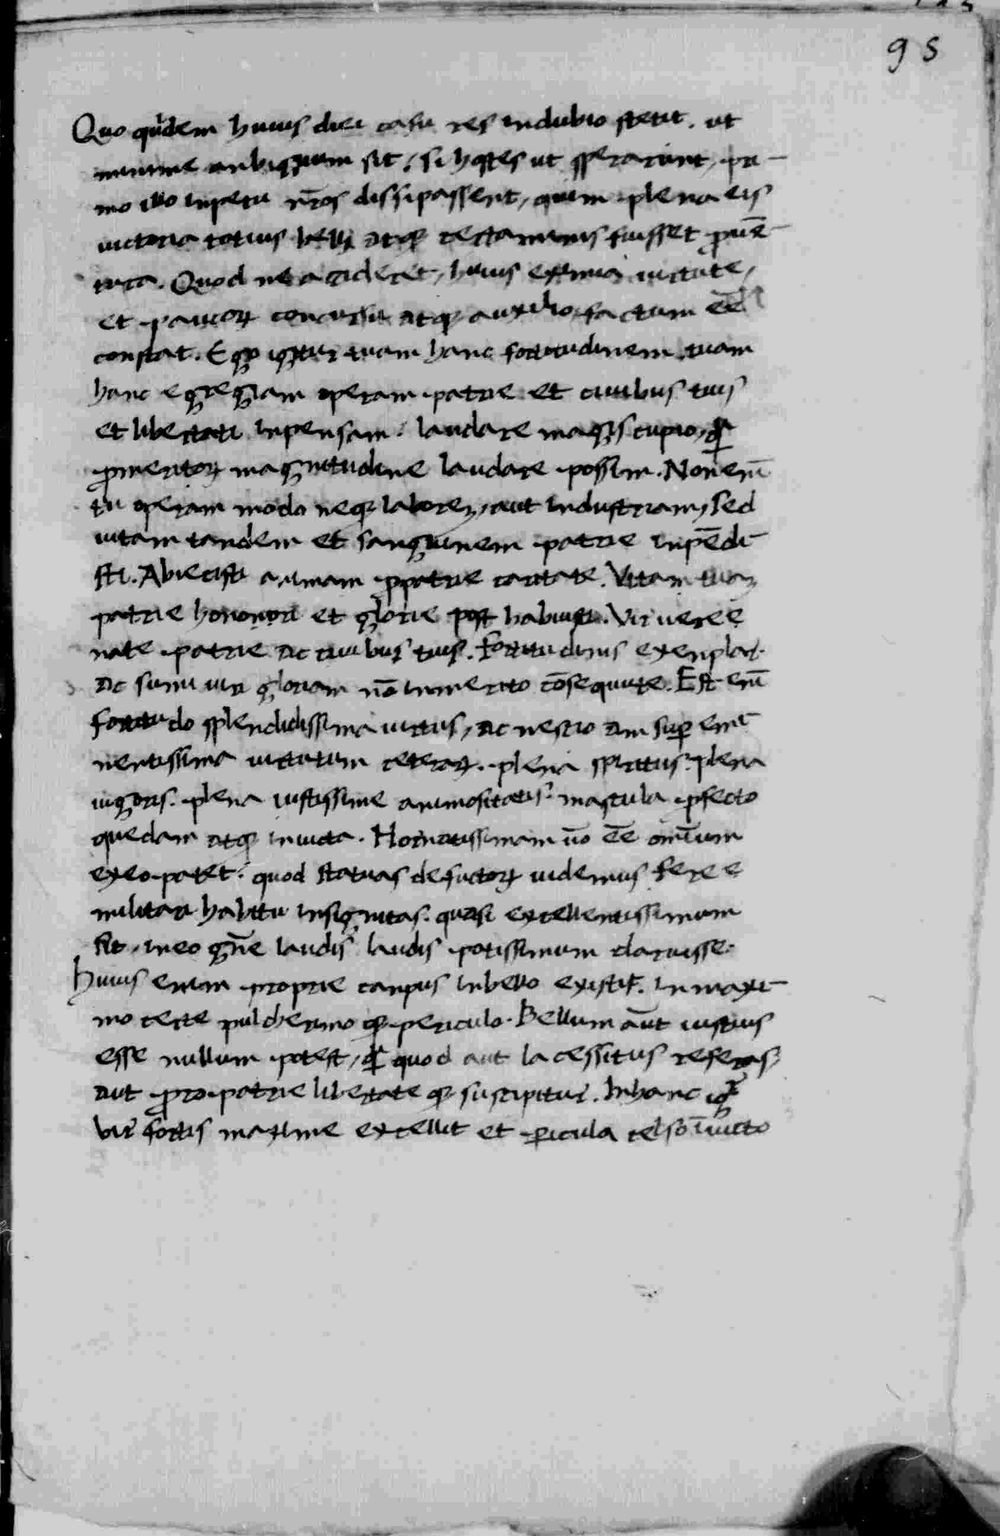 95
Quo quidem huius diei casu res in dubio stetit. ut
minime anbiguum sit, si hostes ut sperarunt, pri-
mo illo inpetu nr̄os dissipassent, quin plena eis
uictoria totius belli atqꝫ certaminis fuisset ꝓuē-
tura. Quod ne accideret, huius eximia uirtute,
et paucoꝝ concursu atqꝫ auxilio factum eē
constat. Ego igitur tuam hanc fortitudinem, tuam
hanc egregiam operam patrie et ciuibus tuis
et libertati inpensam. laudare magis cupio, qȝ
ꝓ meritoꝝ magnitudine laudare possim. Non enī
tu operam modo neqꝫ laboreꝫ, aut industriam, sed
uitam tandem et sanguinem patrie inpēdi-
sti. Abiecisti animam ꝓ patrie caritate. Vitam tuaꝫ
patrie honori et glorie post habuisti. Vir uere e
nate patrie ac ciuibus tuis. fortitudinis exenplar.
ac sumi uiri gloriam nō inmerito cōsequute. Est enī
fortitudo splendidissima uirtus, ac nescio am suꝑ emi
nentissima uirtutum ceteraꝝ. plena spiritus. plena
uigoris. plena iustissime animositatis. mascula ꝓfecto
quedam atqꝫ inuicta. Hornatissimam u̅o eē om̄ium
ex eo patet. quod statuas defuctoꝝ uidemus fere e
militari habitu insignitas. quasi excellentissimum
sit, in eo gn̄e laudis laudis potissimum claruisse.
Huius enim proprie canpus in bello existit. in maxi-
mo certe pulcherimo qꝫ periculo. Bellum aūt iustius
esse nullum potest, qȝ quod aut lacessitus referas
aut pro patrie libertate qꝫ suscipitur. In hanc igr̄
vir fortis maxime excellit et ꝑicula celso īuicto